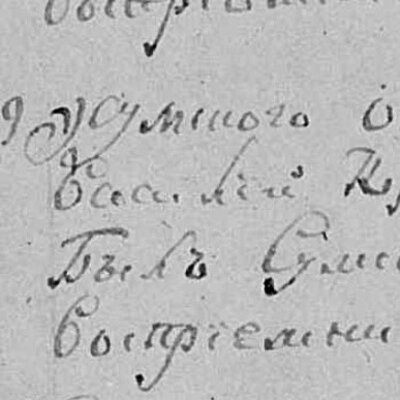 воспрiемни
9 У Сумского о
Василiй К
Былъ Сумс
Воспрiемни